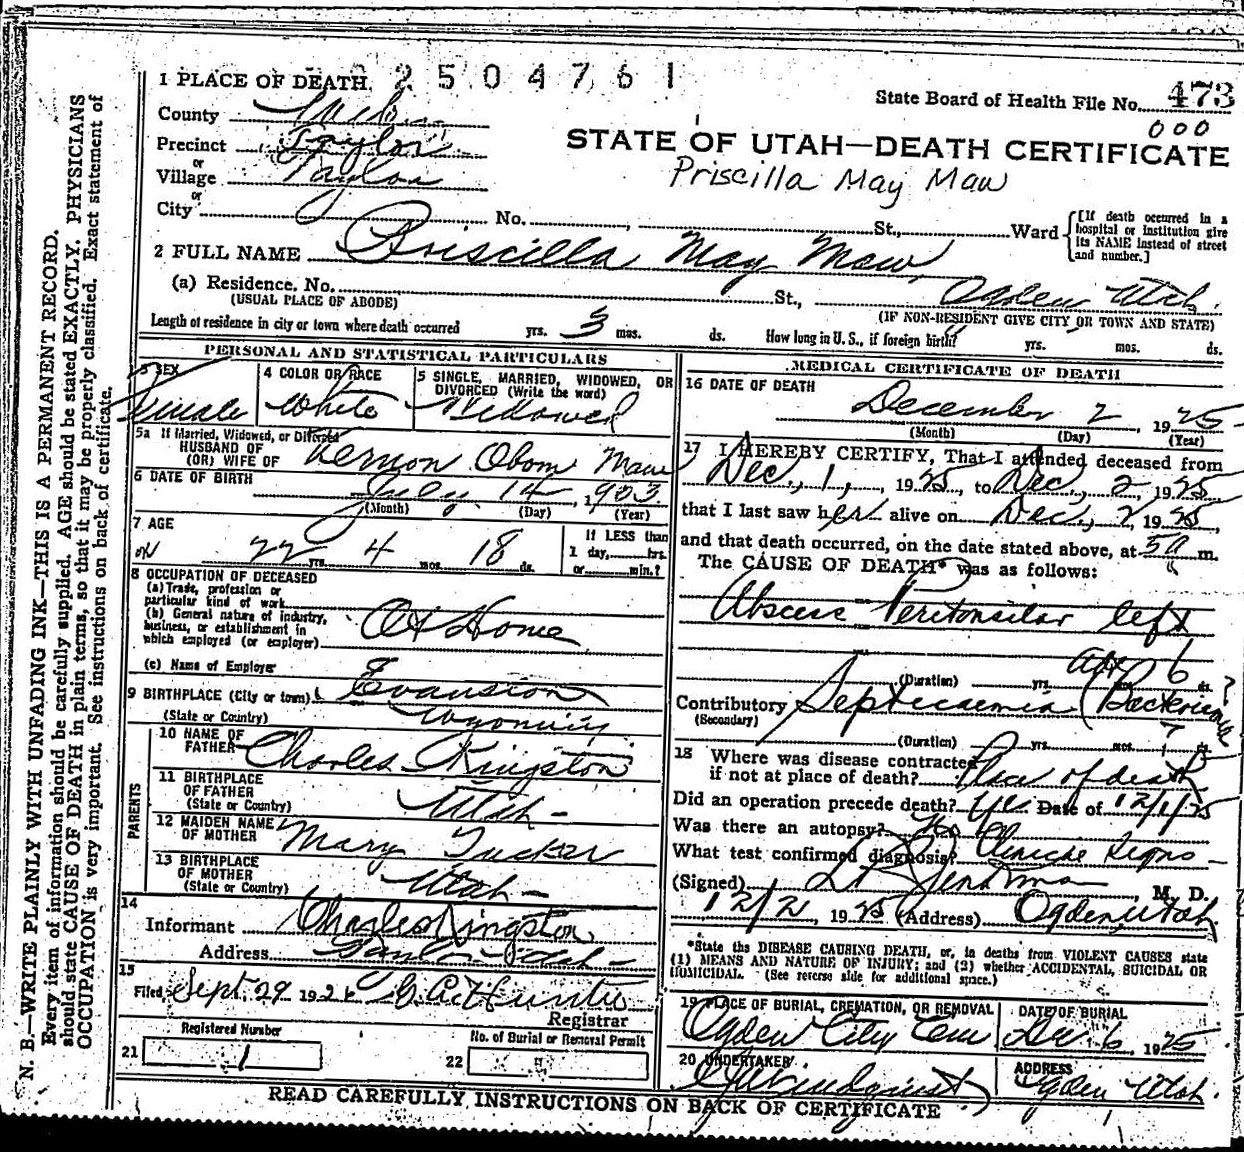 N. B.—WRITE PLAINLY WITH UNFADING INK—THIS IS A PERMANENT RECORD.
Every item of information should be carefully supplied. AGE should be stated EXACTLY. PHYSICIANS
should state CAUSE OF DEATH in plain terms, so that it may be properly classified. Exact statement of
OCCUPATION is very important. See instructions on back of certificate.
1 PLACE OF DEATH
2504761
State Board of Health File No. 473
000
County Weber
STATE OF UTAH—DEATH CERTIFICATE
Precinct Taylor
Priscilla May Maw
or
Village Taylor
or
City No. St., Ward
[If death occurred in a
hospital or institution give
its NAME instead of street
and number.]
2 FULL NAME Priscilla May Maw
(a) Residence. No. St., Ogden Utah.
(USUAL PLACE OF ABODE) (IF NON-RESIDENT GIVE CITY OR TOWN AND STATE)
Length of residence in city or town where death occurred yrs. 3 mos. ds. How long in U. S., if foreign birth? yrs. mos. ds.
PERSONAL AND STATISTICAL PARTICULARS
3 SEX
Female
4 COLOR OR RACE
White
5 SINGLE, MARRIED, WIDOWED, OR
DIVORCED (Write the word)
Widowed
5a If Married, Widowed, or Divorced
HUSBAND OF
(OR) WIFE OF Vernon Obom Maw
6 DATE OF BIRTH July 14, 1903
(Month) (Day) (Year)
7 AGE
22 yrs. 4 mos. 18 ds.
If LESS than
1 day, hrs.
or min.?
8 OCCUPATION OF DECEASED
(a) Trade, profession or
particular kind of work
(b) General nature of industry,
business, or establishment in
which employed (or employer)
At Home
(c) Name of Employer
9 BIRTHPLACE (City or town) Evanston
(State or Country) Wyoming
PARENTS
10 NAME OF
FATHER Charles Kingston
11 BIRTHPLACE
OF FATHER
(State or Country) Utah -
12 MAIDEN NAME
OF MOTHER Mary Tucker
13 BIRTHPLACE
OF MOTHER
(State or Country) Utah -
14
Informant Charles Kingston
Address Taylor Utah -
15
Filed, Sept. 29 1926
Registrar
21
Registered Number
1
22
No. of Burial or Removal Permit
MEDICAL CERTIFICATE OF DEATH
16 DATE OF DEATH
December 2, 1925
(Month) (Day) (Year)
17 I HEREBY CERTIFY, That I attended deceased from
Dec., 1, 1925, to Dec., 2, 1925
that I last saw her alive on Dec., 2, 1925,
and that death occurred, on the date stated above, at 5 a m.
The CAUSE OF DEATH* was as follows:
Abscess Peritonsilar left
(Duration) yrs. mos. 6 ds.
Contributory Septicaemia
(Secondary)
(Duration) yrs. mos. ds.
18 Where was disease contracted
if not at place of death? Place of death
Did an operation precede death? Yes Date of 12/1/25
Was there an autopsy? No
What test confirmed diagnosis? Clinical signs -
(Signed) M. D.
12/2, 1925 (Address) Ogden, Utah
*State the DISEASE CAUSING DEATH, or, in deaths from VIOLENT CAUSES state
(1) MEANS AND NATURE OF INJURY; and (2) whether ACCIDENTAL, SUICIDAL OR
HOMICIDAL. (See reverse side for additional space.)
19 PLACE OF BURIAL, CREMATION, OR REMOVAL
Ogden City Cem
DATE OF BURIAL
Dec 6, 1925
20 UNDERTAKER
ADDRESS
Ogden Utah.
READ CAREFULLY INSTRUCTIONS ON BACK OF CERTIFICATE